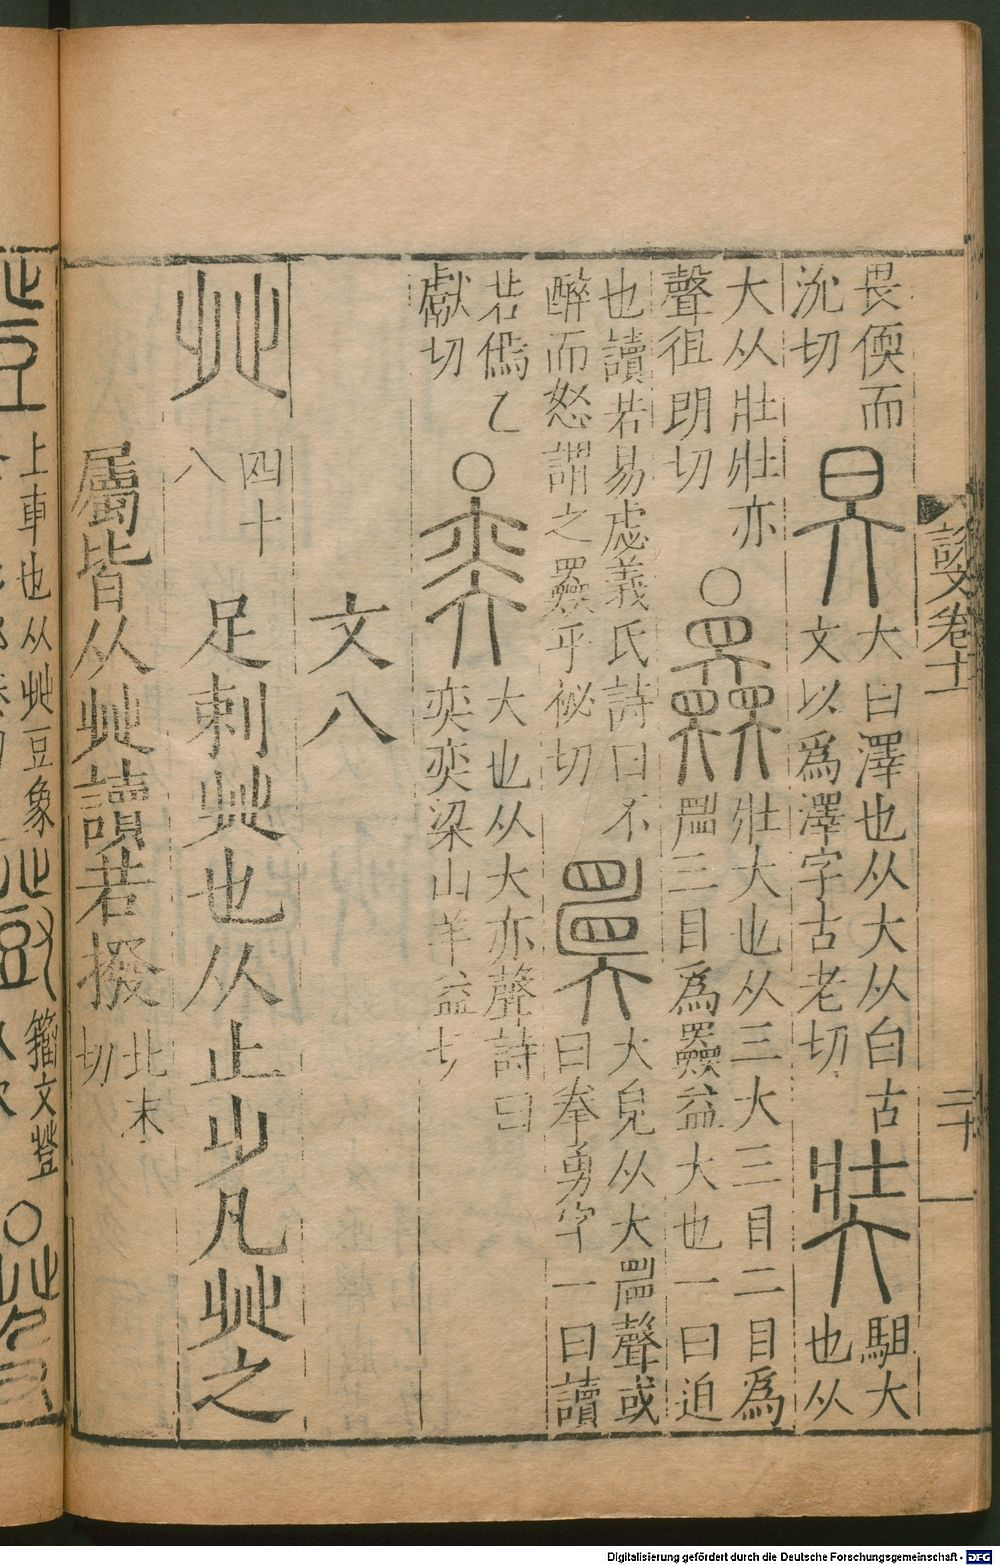 畏偄而
沇切
大白澤也从大从白古
文以爲澤字古老切
駔大
也从
大从壯壯亦
聲徂朗切
壯大也从三大三目二目爲
𥇛三目爲𡚤益大也一曰迫
也讀若易虙羲氏詩曰不
醉而怒謂之𡚤平祕切
大皃从大𥇛聲或
曰拳勇字一曰讀
若傿乙
獻切
大也从大亦聲詩曰
奕奕梁山羊益切
文八
癶
四十
八
足剌癶也从止𣥂凡癶之
屬皆从癶讀若撥
北末
切
說文卷十一
二十
上車也从癶豆象
籀文登
Digitalisierung gefördert durch die Deutsche Forschungsgemeinschaft - DFG